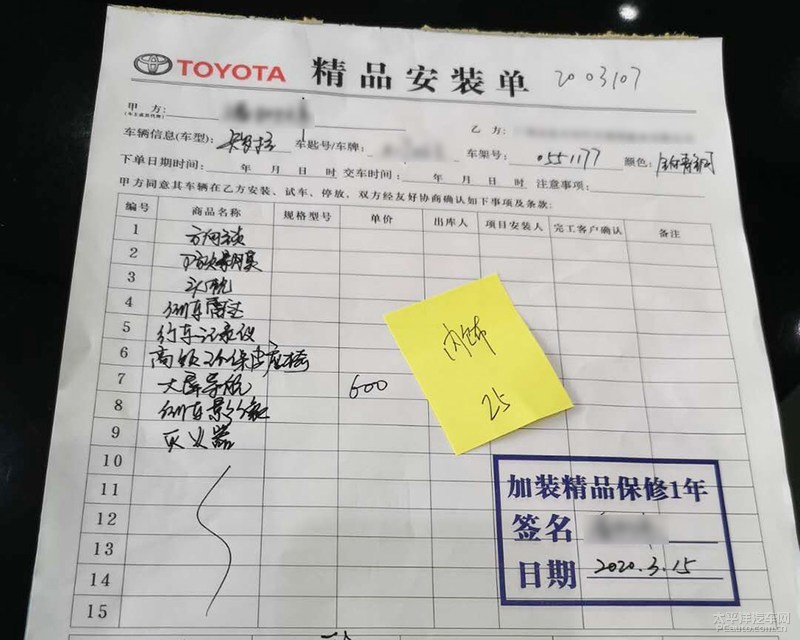 TOYOTA 精品安装单 2003107
甲 方:
(车主或其代理)
乙 方:
车辆信息(车型): 卡罗拉 车匙号/车牌: 车架号: 0551177 颜色:
下单日期时间: 年 月 日 时 交车时间: 年 月 日 时 注意事项:
甲方同意其车辆在乙方安装、试车、停放,双方经友好协商确认如下事项及条款:
编号 商品名称 规格型号 单价 出库人 项目安装人 完工客户确认 备注
1
2 防爆膜
3 头枕
4 倒车雷达
5 行车记录仪
6 高级环保皮座椅
7 大屏导航 600
8 倒车影像
9 灭火器
10
11
12
13
14
15
内饰
25
加装精品保修1年
签名
日期 2020.3.15
太平洋汽车网
PCauto.com.cn